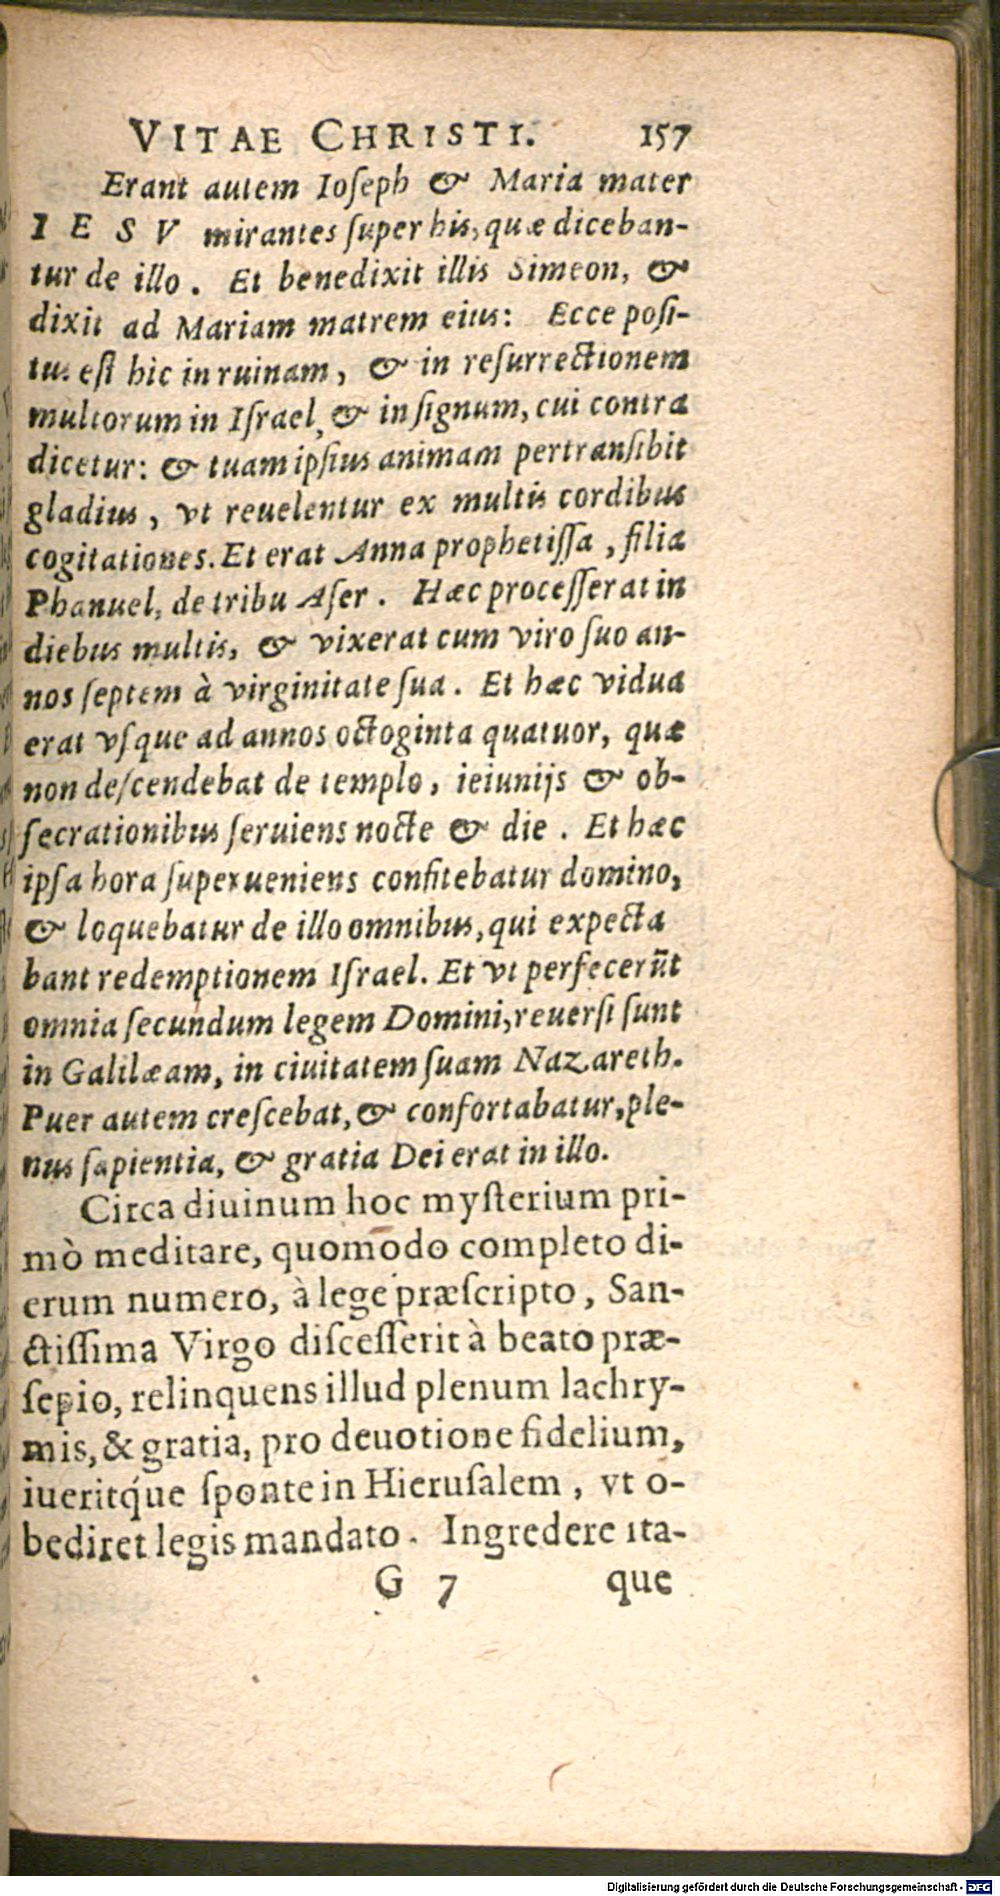 VITAE CHRISTI. 157
Erant autem Ioſeph & Maria mater
IESV mirantes ſuper his, quæ diceban-
tur de illo. Et benedixit illis Simeon, &
dixit ad Mariam matrem eius: Ecce poſi-
tus eſt hic in ruinam, & in reſurrectionem
multorum in Iſrael, & in ſignum, cui contra
dicetur: & tuam ipſius animam pertranſibit
gladius, vt reuelentur ex multis cordibus
cogitationes. Et erat Anna prophetiſſa, filia
Phanuel, de tribu Aſer. Hæc proceſſerat in
diebus multis, & vixerat cum viro ſuo an-
nos ſeptem à virginitate ſua. Et hæc vidua
erat vſque ad annos octoginta quatuor, quæ
non deſcendebat de templo, ieiunijs & ob-
ſecrationibus ſeruiens nocte & die. Et hæc
ipſa hora ſuperueniens confitebatur domino,
& loquebatur de illo omnibus, qui expecta
bant redemptionem Iſrael. Et vt perfecerūt
omnia ſecundum legem Domini, reuerſi ſunt
in Galilæam, in ciuitatem ſuam Nazareth.
Puer autem creſcebat, & confortabatur, ple-
nus ſapientia, & gratia Dei erat in illo.
Circa diuinum hoc myſterium pri-
mò meditare, quomodo completo di-
erum numero, à lege præſcripto, San-
ctiſſima Virgo diſceſſerit à beato præ-
ſepio, relinquens illud plenum lachry-
mis, & gratia, pro deuotione fidelium,
iueritq́ue ſponte in Hieruſalem, vt o-
bediret legis mandato. Ingredere ita-
G 7 que
Digitalisierung gefördert durch die Deutsche Forschungsgemeinschaft - DFG